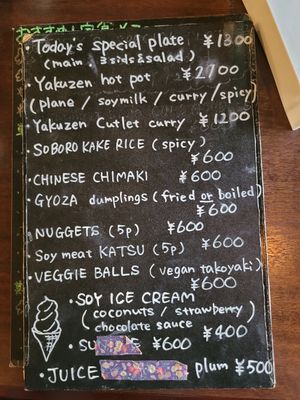 ・Today's special plate ¥1300
(main, 3 sids&salad)
・Yakuzen hot pot ¥2700
(plane / soymilk / curry/spicy)
・Yakuzen Cutlet curry ¥1200
・SOBORO KAKE RICE (spicy)
¥600
・CHINESE CHIMAKI ¥600
・GYOZA dumplings (fried or boiled)
¥600
・NUGGETS (5p) ¥600
・Soy meat KATSU (5p) ¥600
・VEGGIE BALLS (vegan takoyaki)
¥600
・SOY ICE CREAM
(coconuts / strawberry)
chocolate sauce ¥400
¥600
・JUICE plum ¥500